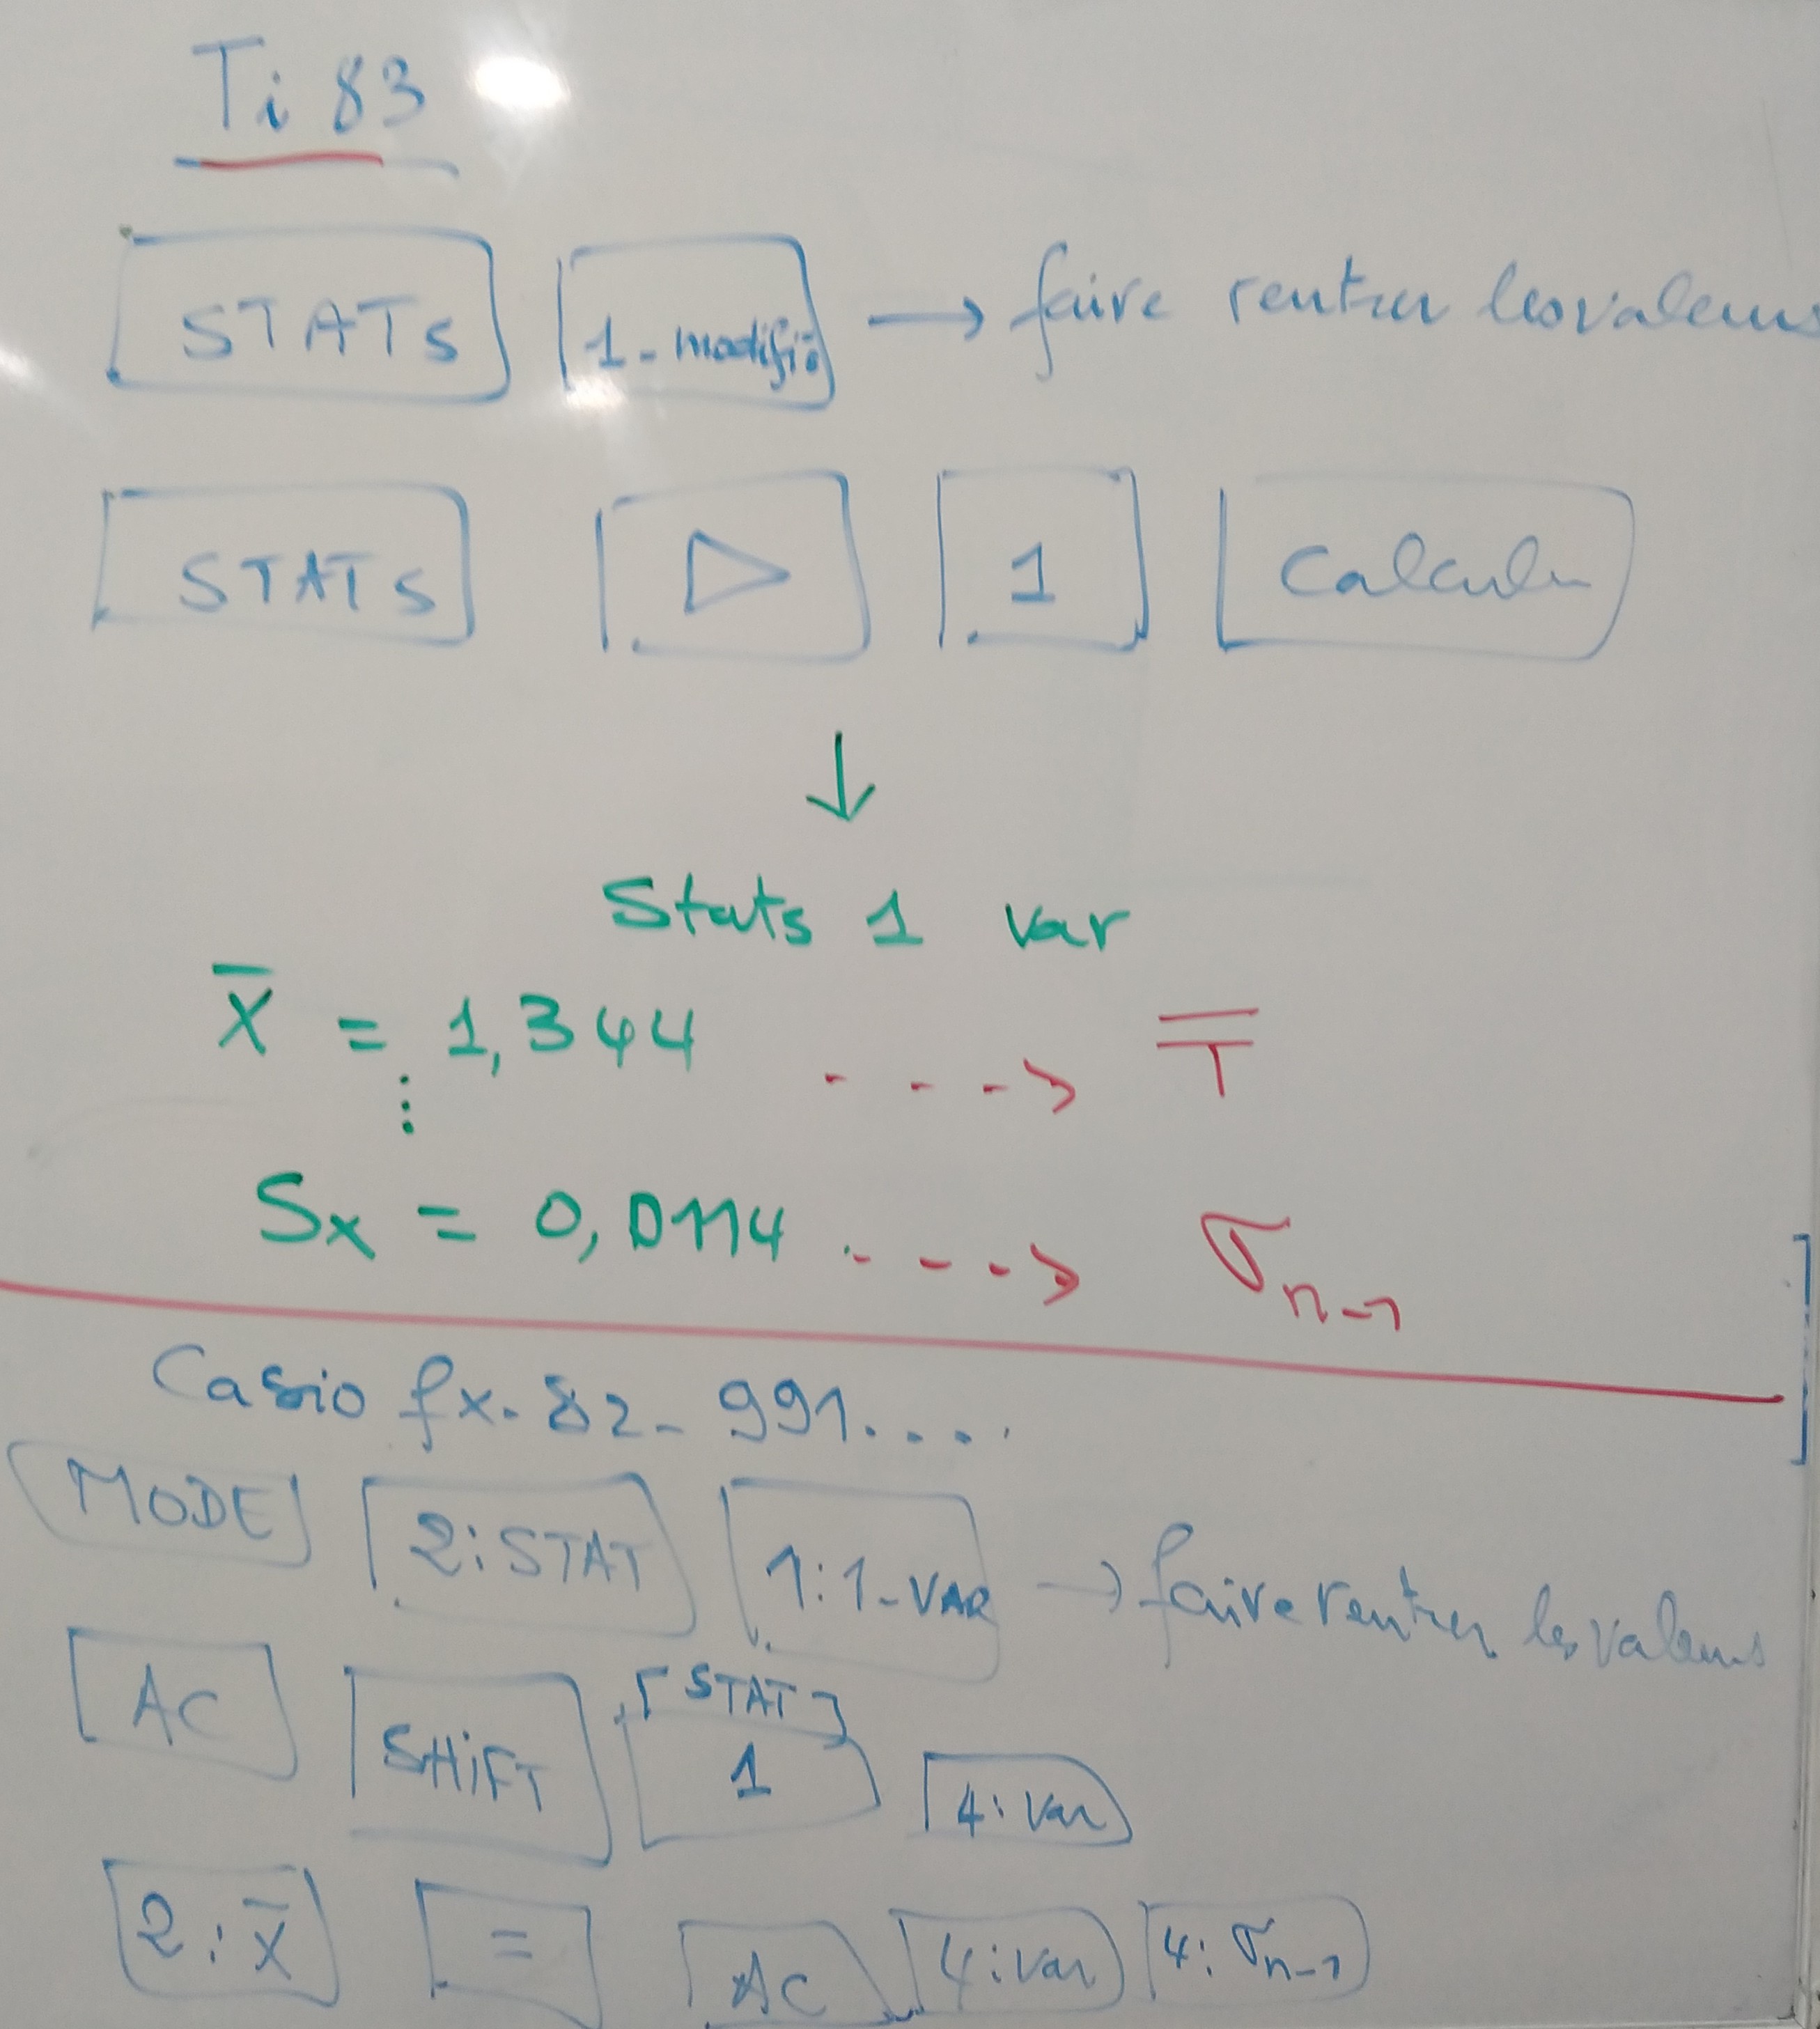 Ti 83
STATS 1-modifie → faire rentrer les valeurs
STATS ▷ 1 Calculer
↓
Stats 1 var
x̄ = 1,344 ---> T̄
⋮
Sx = 0,0114 ---> σn-1
Casio fx-82-991....
MODE 2:STAT 1:1-VAR → faire rentrer les valeurs
[STAT]
AC SHIFT 1 4:Var
2:x̄ = AC 4:Var 4:σn-1